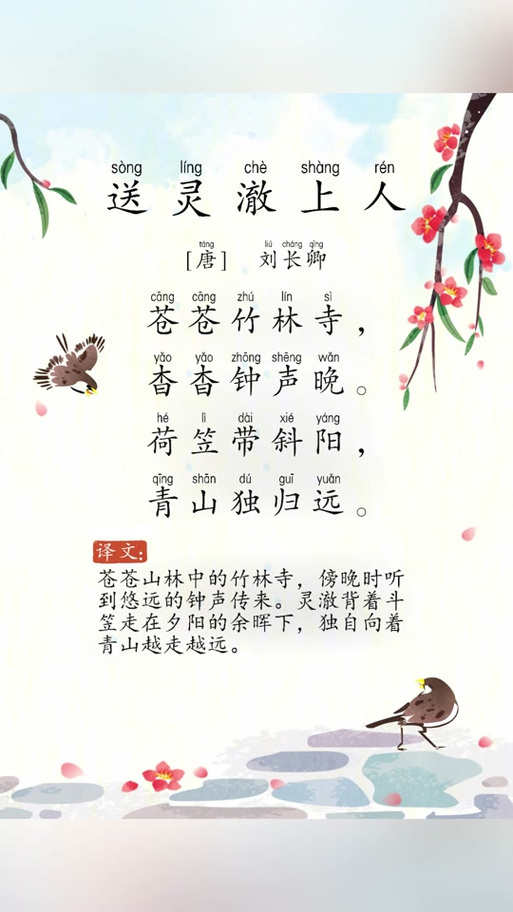 sòng líng chè shàng rén
送灵澈上人
táng liú cháng qīng
[唐] 刘长卿
cāng cāng zhú lín sì
苍苍竹林寺，
yǎo yǎo zhōng shēng wǎn
杳杳钟声晚。
hé lì dài xié yáng
荷笠带斜阳，
qīng shān dú guī yuǎn
青山独归远。
译文：
苍苍山林中的竹林寺，傍晚时听
到悠远的钟声传来。灵澈背着斗
笠走在夕阳的余晖下，独自向着
青山越走越远。